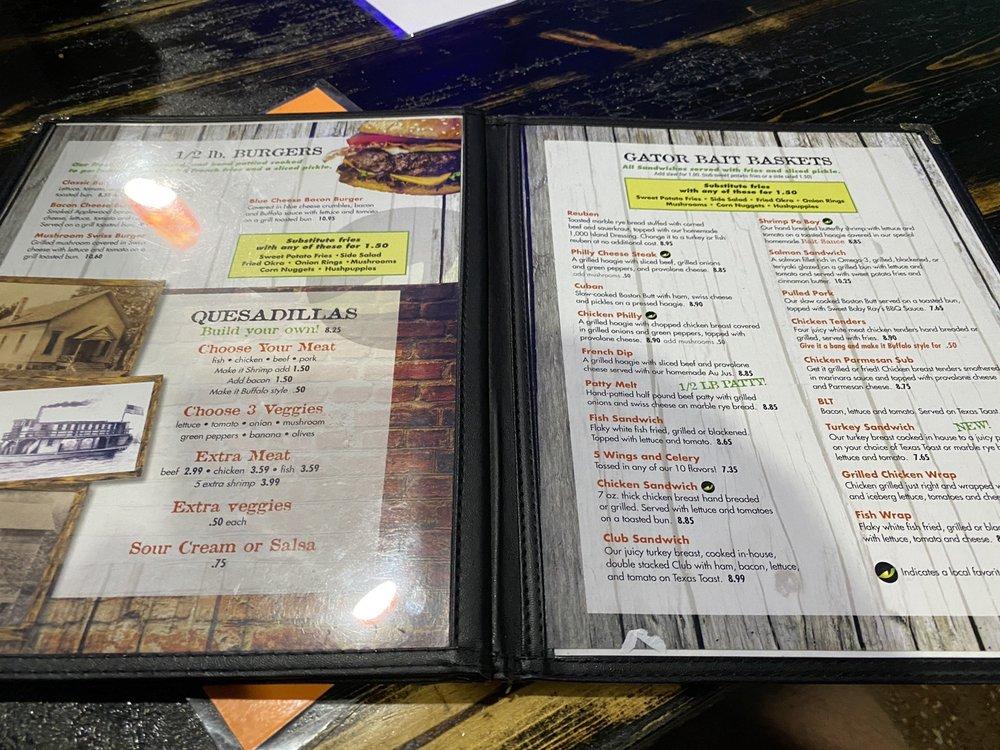 1/2 lb. BURGERS
hand pattied cooked
fries and sliced pickle.
Classic
Lettuce, tomato,
toasted bun.
Bacon Cheese
Smoked Applewood bacon
cheese, lettuce, tomato
Served on a grill toasted
Mushroom Swiss Burger
Grilled mushroom covered in Swiss
cheese with lettuce and tomato on a
grill toasted bun. 10.60
Blue Cheese Bacon Burger
Covered in blue cheese crumbles, bacon
and Buffalo sauce with lettuce and tomato
on a grill toasted bun. 10.95
Substitute fries
with any of these for 1.50
Sweet Potato Fries • Side Salad
Fried Okra • Onion Rings • Mushrooms
Corn Nuggets • Hushpuppies
QUESADILLAS
Build your own! 8.25
Choose Your Meat
fish • chicken • beef • pork
Make it Shrimp add 1.50
Add bacon 1.50
Make it Buffalo style .50
Choose 3 Veggies
lettuce • tomato • onion • mushroom
green peppers • banana • olives
Extra Meat
beef 2.99 • chicken 3.59 • fish 3.59
5 extra shrimp 3.99
Extra veggies
.50 each
Sour Cream or Salsa
.75
GATOR BAIT BASKETS
All Sandwiches served with fries and sliced pickle.
Add slaw for 1.00. (Sub sweet potato fries or a side salad 1.50)
Substitute fries
with any of these for 1.50
Sweet Potato Fries • Side Salad • Fried Okra • Onion Rings
Mushrooms • Corn Nuggets • Hushpuppies
Reuben
Toasted marble rye bread stuffed with corned
beef and sauerkraut, topped with our homemade
1,000 Island Dressing. Change it to a turkey or fish
reuben at no additional cost. 8.95
Philly Cheese Steak
A grilled hoagie with sliced beef, grilled onions
and green peppers, and provolone cheese. 8.85
add mushrooms .50
Cuban
Slow-cooked Boston Butt with ham, swiss cheese
and pickles on a pressed hoagie. 8.90
Chicken Philly
A grilled hoagie with chopped chicken breast covered
in grilled onions and green peppers, topped with
provolone cheese. 8.90 add mushrooms .50
French Dip
A grilled hoagie with sliced beef and provolone
cheese served with our homemade Au Jus. 8.85
Patty Melt 1/2 LB PATTY!
Hand-pattied half pound beef patty with grilled
onions and swiss cheese on marble rye bread. 8.85
Fish Sandwich
Flaky white fish fried, grilled or blackened.
Topped with lettuce and tomato. 8.65
5 Wings and Celery
Tossed in any of our 10 flavors! 7.35
Chicken Sandwich
7 oz. thick chicken breast hand breaded
or grilled. Served with lettuce and tomatoes
on a toasted bun. 8.85
Club Sandwich
Our juicy turkey breast, cooked in-house,
double stacked Club with ham, bacon, lettuce,
and tomato on Texas Toast. 8.99
Shrimp Po Boy
Our hand breaded butterfly shrimp with lettuce and
tomato on a toasted hoagie covered in our special
homemade Bait Sauce 8.85
Salmon Sandwich
A salmon fillet rich in Omega-3, grilled, blackened, or
teriyaki glazed on a grilled bun with lettuce and
tomato and served with sweet potato fries and
cinnamon butter. 10.25
Pulled Pork
Our slow cooked Boston Butt served on a toasted bun,
topped with Sweet Baby Ray's BBQ Sauce. 7.65
Chicken Tenders
Four juicy white meat chicken tenders hand breaded or
grilled, served with fries. 8.90
Give it a bang and make it Buffalo style for .50
Chicken Parmesan Sub
Get it grilled or fried! Chicken breast tenders smothered
in marinara sauce and topped with provolone cheese
and Parmesan cheese. 8.75
BLT
Bacon, lettuce and tomato. Served on Texas Toast
Turkey Sandwich NEW!
Our turkey breast cooked in house to a juicy
on your choice of Texas Toast or marble rye
lettuce and tomato. 7.65
Grilled Chicken Wrap
Chicken grilled just right and wrapped
and iceberg lettuce, tomatoes and
Fish Wrap
Flaky white fish fried, grilled or
with lettuce, tomato and cheese.
Indicates a local favorit